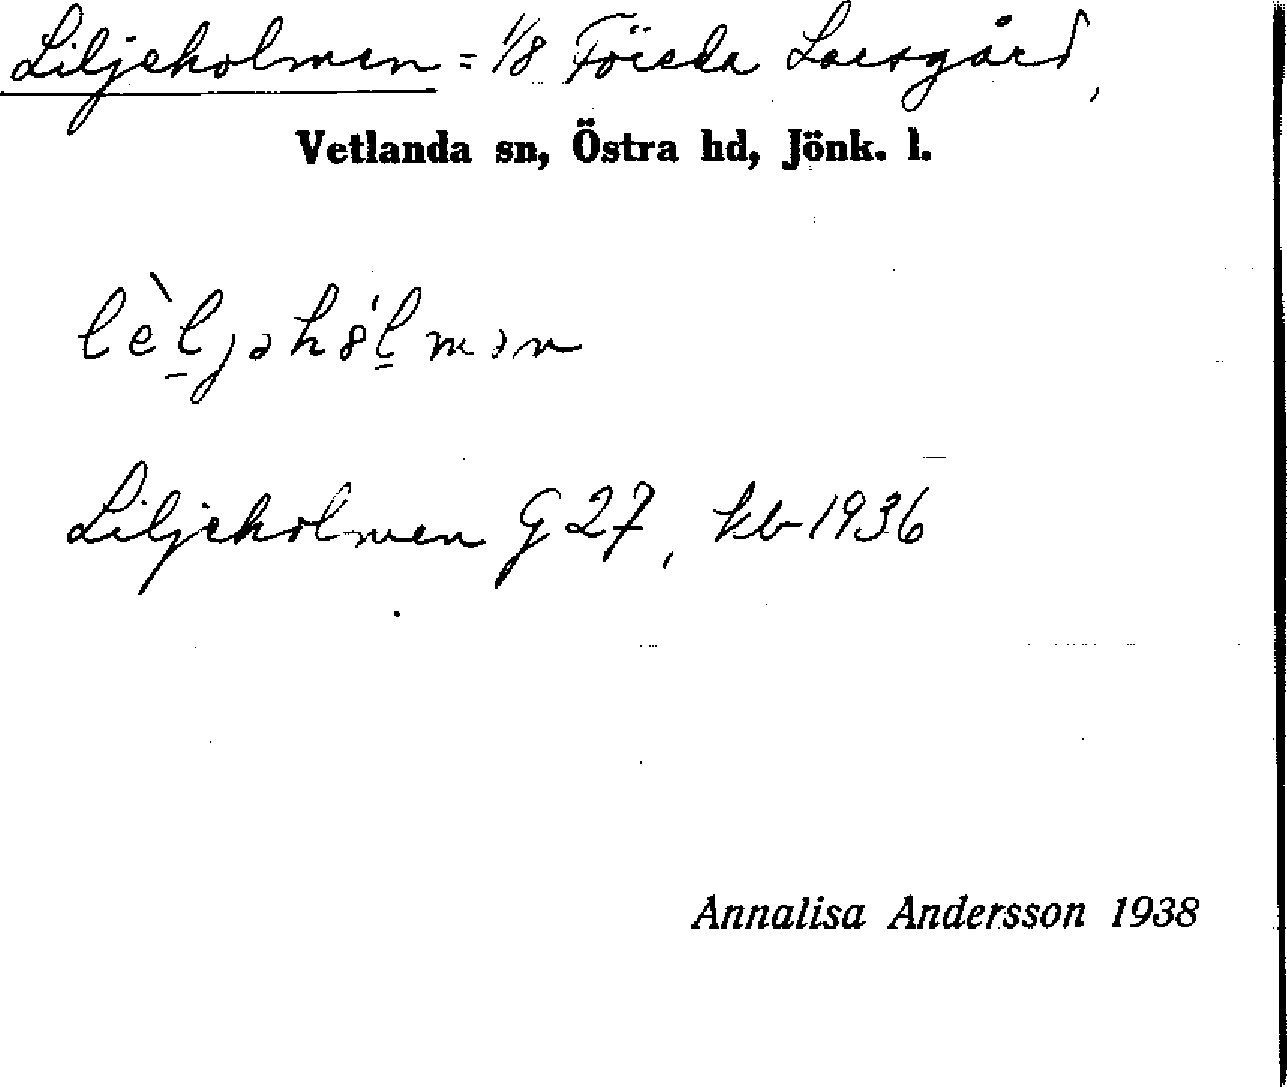 Liljeholmen = 1/8 Föreda Larsgård,
Vetlanda sn, Östra hd, Jönk. l.
lèljəhólmən
Liljeholmen G 27, kb 1936
Annalisa Andersson 1938